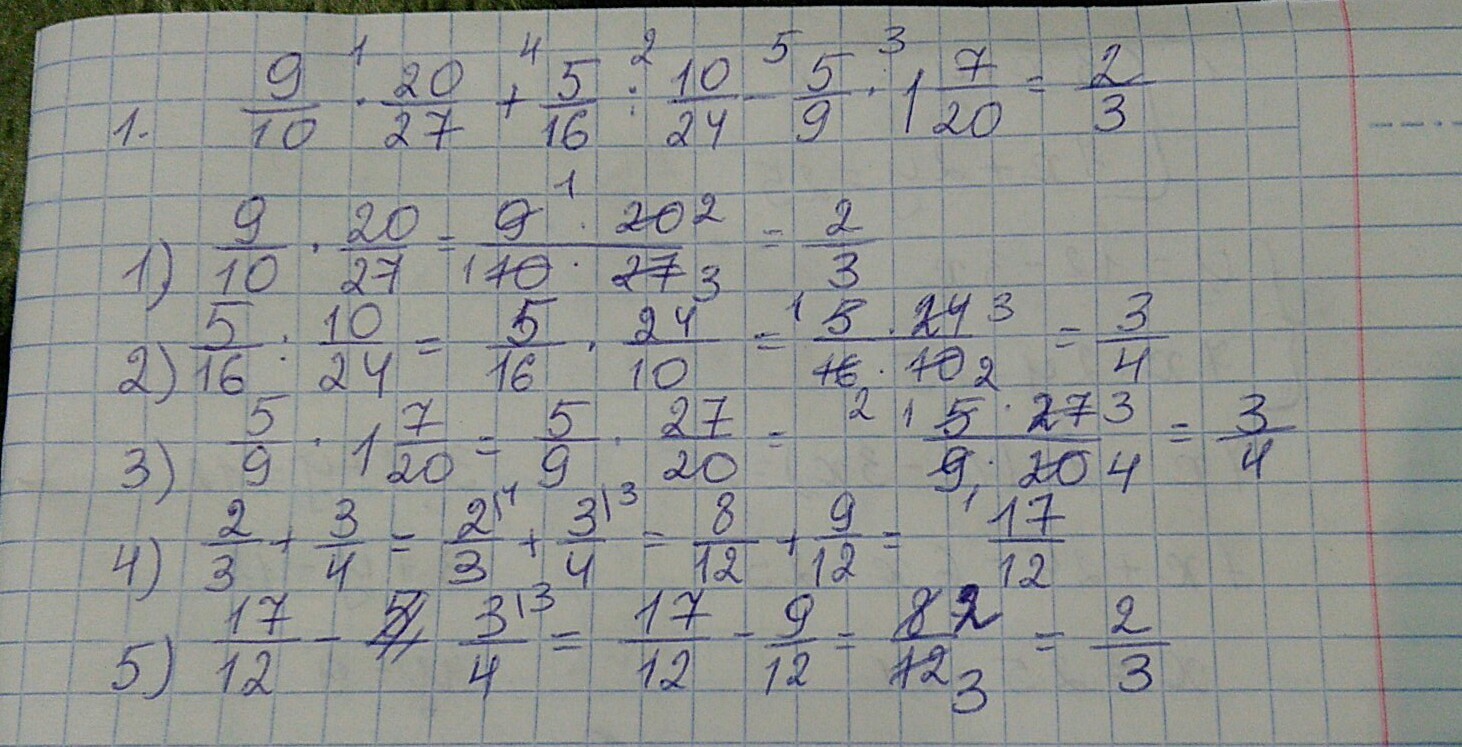 1. 9/10 ·¹ 20/27 +⁴ 5/16 :² 10/24 -⁵ 5/9 ·³ 1 7/20 = 2/3
1) 9/10 · 20/27 = 9 1 · 20 2 / 1 10 · 27 3 = 2/3
2) 5/16 : 10/24 = 5/16 · 24/10 = 1 5 · 24 3 / 16 · 10 2 = 3/4
3) 5/9 · 1 7/20 = 5/9 · 27/20 = 1 5 · 27 3 / 9 · 20 4 = 3/4
4) 2/3 + 3/4 = 2|4/3 + 3|3/4 = 8/12 + 9/12 = 17/12
5) 17/12 - 3|3/4 = 17/12 - 9/12 = 8 2/12 3 = 2/3